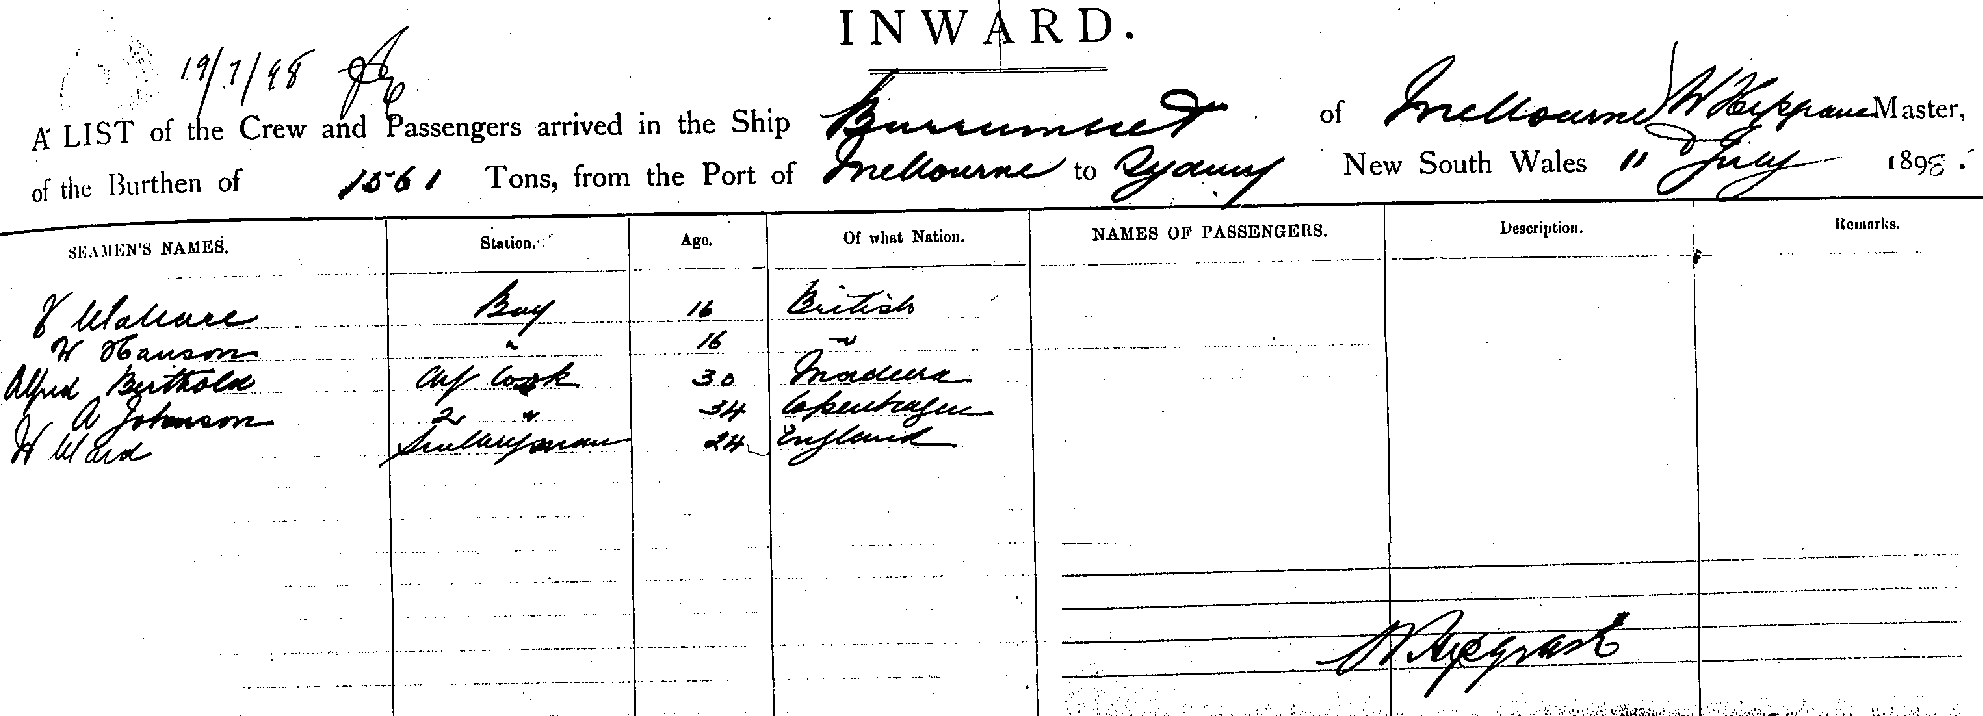 INWARD.
19/7/98
A LIST of the Crew and Passengers arrived in the Ship Burrumbeet of Melbourne W Master,
of the Burthen of 1561 Tons, from the Port of Melbourne to Sydney New South Wales 11 July 1898.
SEAMEN'S NAMES. Station. Age. Of what Nation. NAMES OF PASSENGERS. Description. Remarks.
Wallace Boy 16 British
W Hanson " 16 "
Alfred Berthold Cook 30 Madeira
A Johnson 2 " 34 Copenhagen
H Ward 24 England